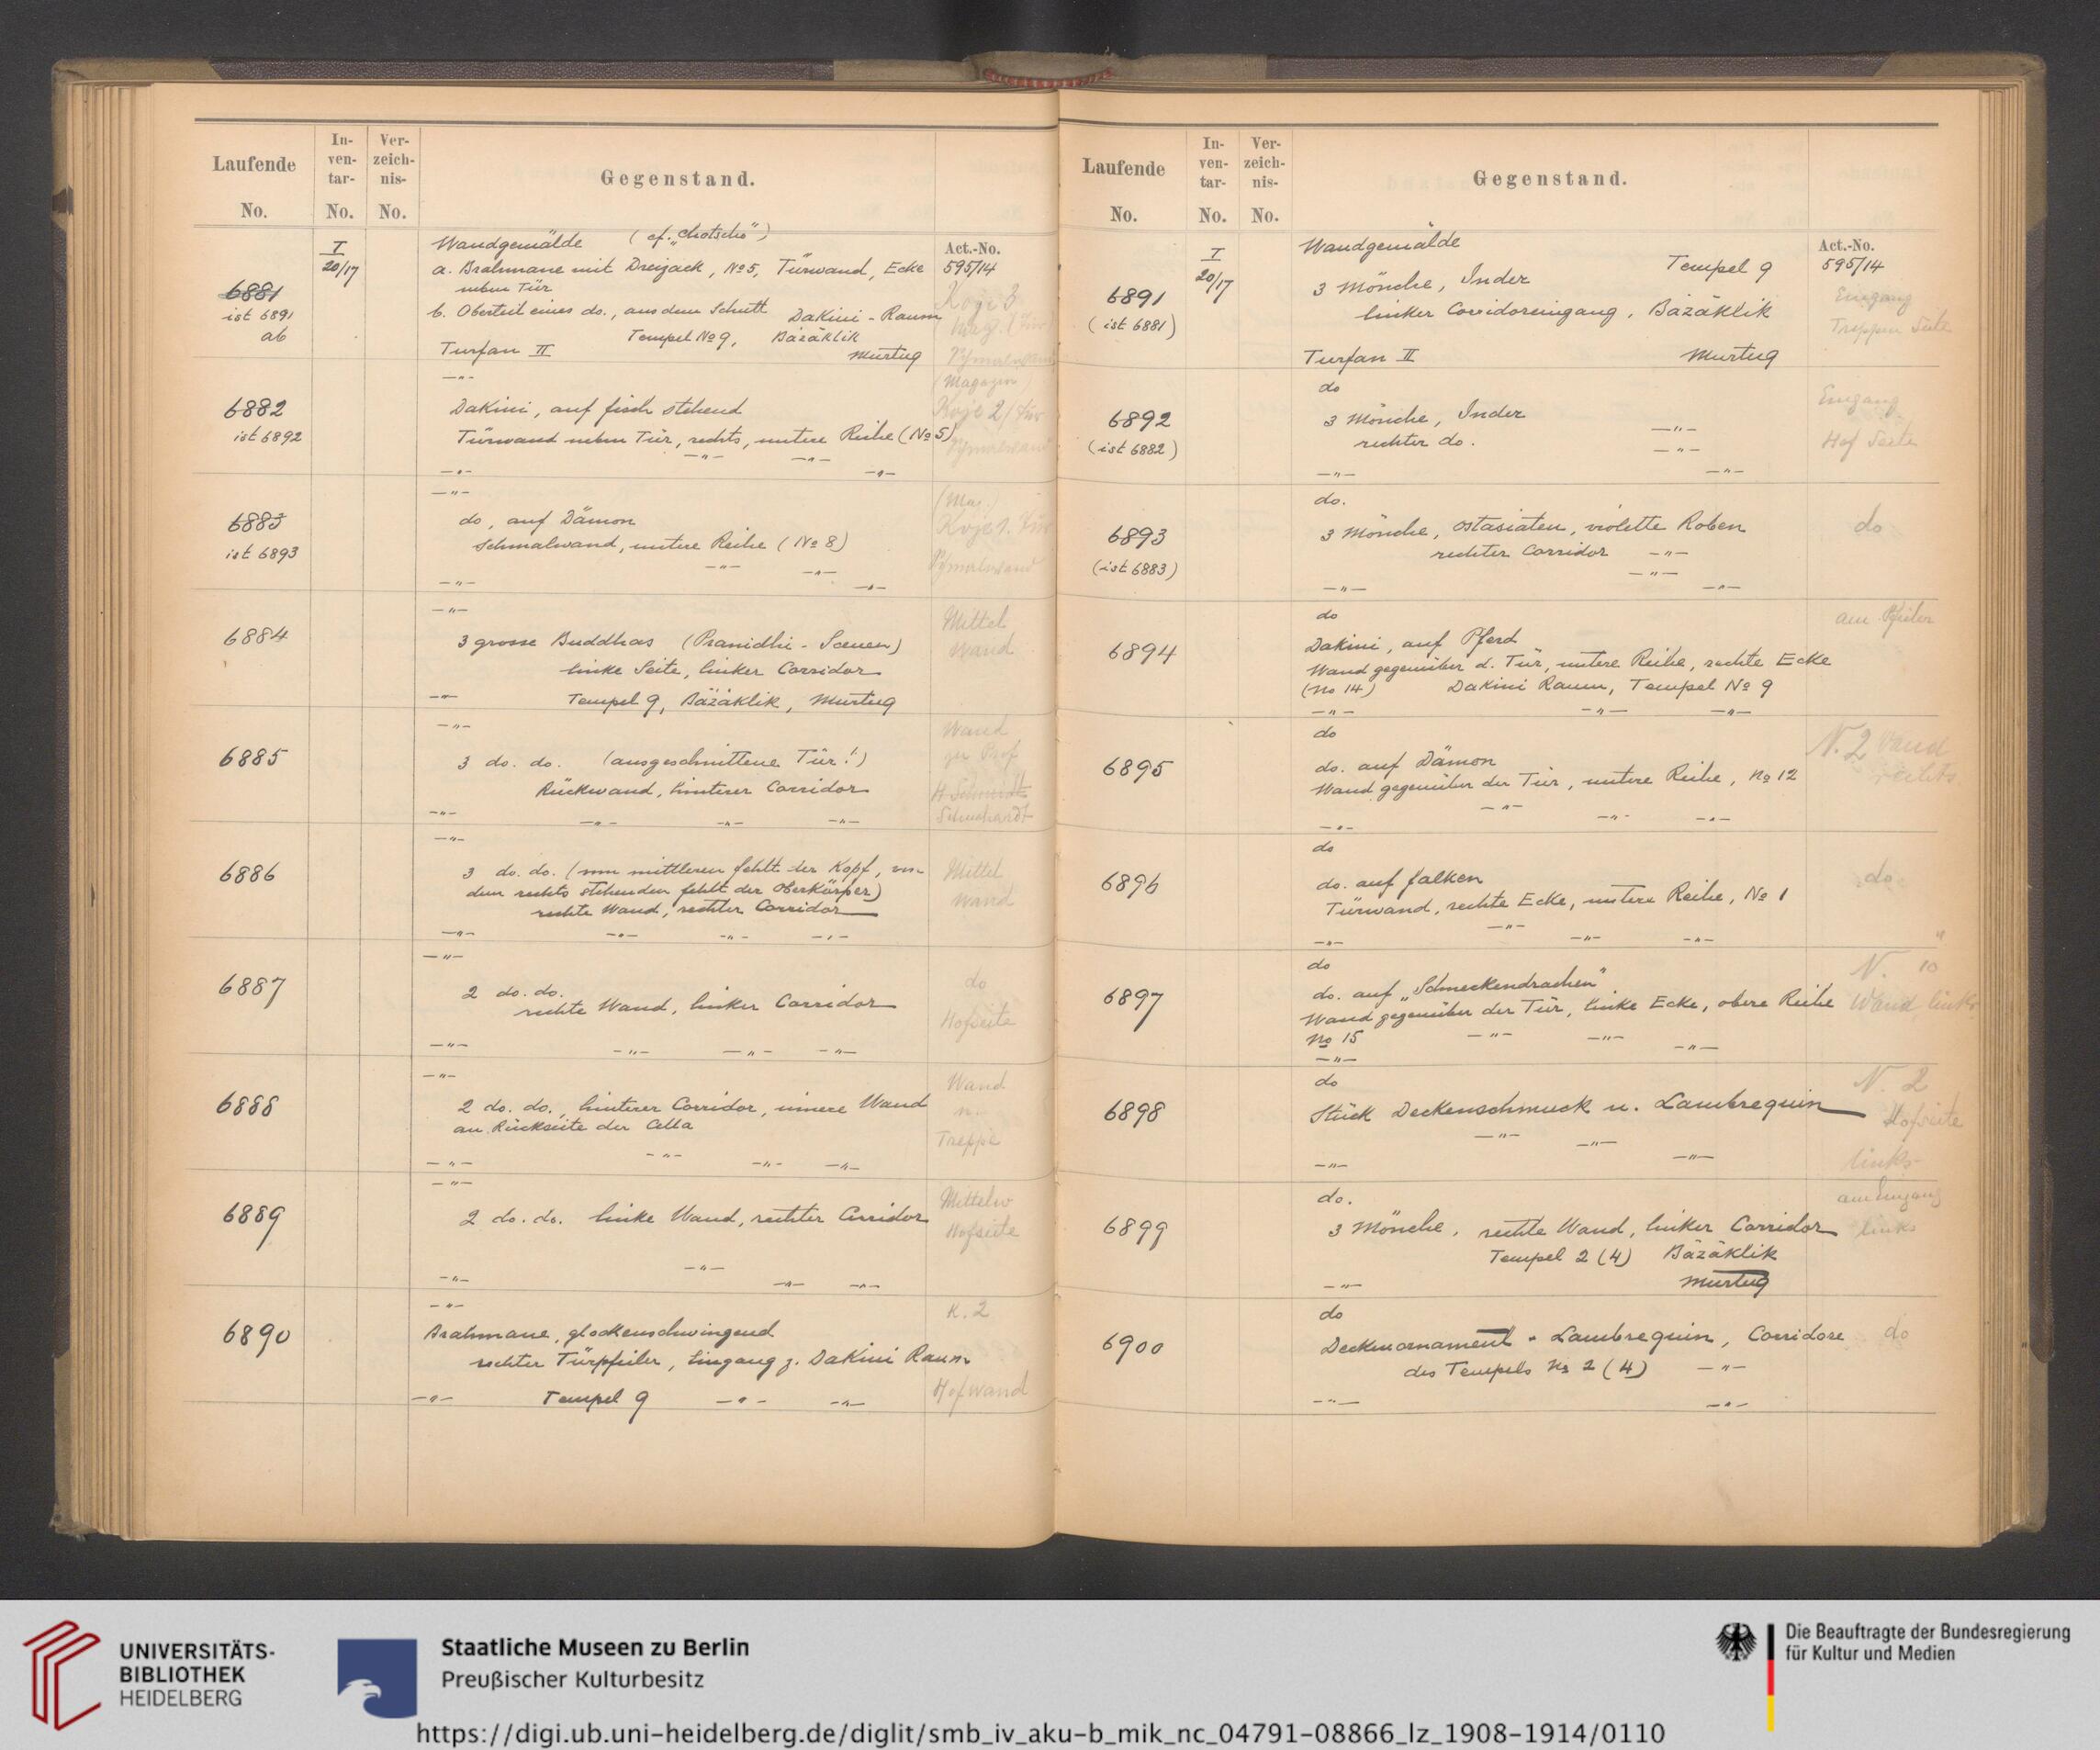 Laufende
No.
In-
ven-
tar-
No.
Ver-
zeich-
nis-
No.
Gegenstand.
I
20/17
6881
ist 6891
ab
Wandgemälde (cf. „Chotscho")
a. Brahmane mit Dreizack, No 5, Türwand, Ecke
neben Tür
b. Oberteil eines do., aus dem Schutt Dakini-Raum
Tempel No 9, Bäzäklik
Turfan II Murtug
Act.-No.
595/14
Koje 3
6882
ist 6892
—"—
Dakini, auf Fisch stehend
Türwand neben Tür, rechts, untere Reihe (No 5)
—"— —"—
—"— —"—
(Magazin)
Koje 2/
6883
ist 6893
—"—
do, auf Dämon
Schmalwand, untere Reihe (No 8)
—"— —"—
—"— —"—
(Mag.)
Koje 1.
6884
—"—
3 grosse Buddhas (Pranidhi-Scenen)
linke Seite, linker Corridor
—"— Tempel 9, Bäzäklik, Murtug
Mittel
wand
6885
—"—
3 do. do. (ausgeschnittene Tür!)
Rückwand, hinterer Corridor
—"— —"— —"— —"—
Wand
Prof
Schmidt
Schuchardt
6886
—"—
3 do. do. (vom mittleren fehlt der Kopf, von
dem rechts stehenden fehlt der Oberkörper)
rechte Wand, rechter Corridor
—"— —"— —"— —"—
Mittel
wand
6887
—"—
2 do. do.
rechte Wand, linker Corridor
—"— —"— —"— —"—
do
Hofseite
6888
—"—
2 do. do., hinterer Corridor, innere Wand
an Rückseite der Cella
—"—
—"— —"— —"—
Wand
Treppe
6889
—"—
2 do. do. linke Wand, rechter Corridor
—"—
—"— —"— —"—
Mittelw
Hofseite
6890
—"—
Brahmane, glockenschwingend
rechter Türpfeiler, Eingang z. Dakini Raum
—"— Tempel 9 —"— —"—
K. 2
Hofwand
Laufende
No.
In-
ven-
tar-
No.
Ver-
zeich-
nis-
No.
Gegenstand.
I
20/17
6891
(ist 6881)
Wandgemälde
Tempel 9
3 Mönche, Inder
linker Corridoreingang, Bäzäklik
Turfan II Murtug
Act.-No.
595/14
Eingang
Treppen Seite
6892
(ist 6882)
do
3 Mönche, Inder
rechter do. —"—
—"—
—"— —"—
Eingang
Hof Seite
6893
(ist 6883)
do.
3 Mönche, Ostasiaten, violette Roben
rechter Corridor —"—
—"—
—"— —"—
do
6894
do
Dakini, auf Pferd
Wand gegenüber d. Tür, untere Reihe, rechte Ecke
(No 14) Dakini Raum, Tempel No 9
—"— —"— —"—
am Pfeiler
6895
do
do. auf Dämon
Wand gegenüber der Tür, untere Reihe, No 12
—"—
—"— —"— —"—
N. 2 Wand
rechts
6896
do
do. auf Falken
Türwand, rechte Ecke, untere Reihe, No 1
—"—
—"— —"— —"—
do
6897
do
do. auf „Schneckendrachen"
Wand gegenüber der Tür, linke Ecke, obere Reihe
No 15 —"— —"— —"—
—"—
N. 10
Wand links
6898
do
Stück Deckenschmuck u. Lambrequin
—"— —"—
—"— —"—
N. 2
Hofseite
links
6899
do.
3 Mönche, rechte Wand, linker Corridor
Tempel 2 (4) Bäzäklik
—"— Murtug
am Eingang
links
6900
do
Deckenornament + Lambrequin, Corridore
des Tempels No 2 (4) —"—
—"— —"—
do
UNIVERSITÄTS-
BIBLIOTHEK
HEIDELBERG
Staatliche Museen zu Berlin
Preußischer Kulturbesitz
Die Beauftragte der Bundesregierung
für Kultur und Medien
https://digi.ub.uni-heidelberg.de/diglit/smb_iv_aku-b_mik_nc_04791-08866_lz_1908-1914/0110